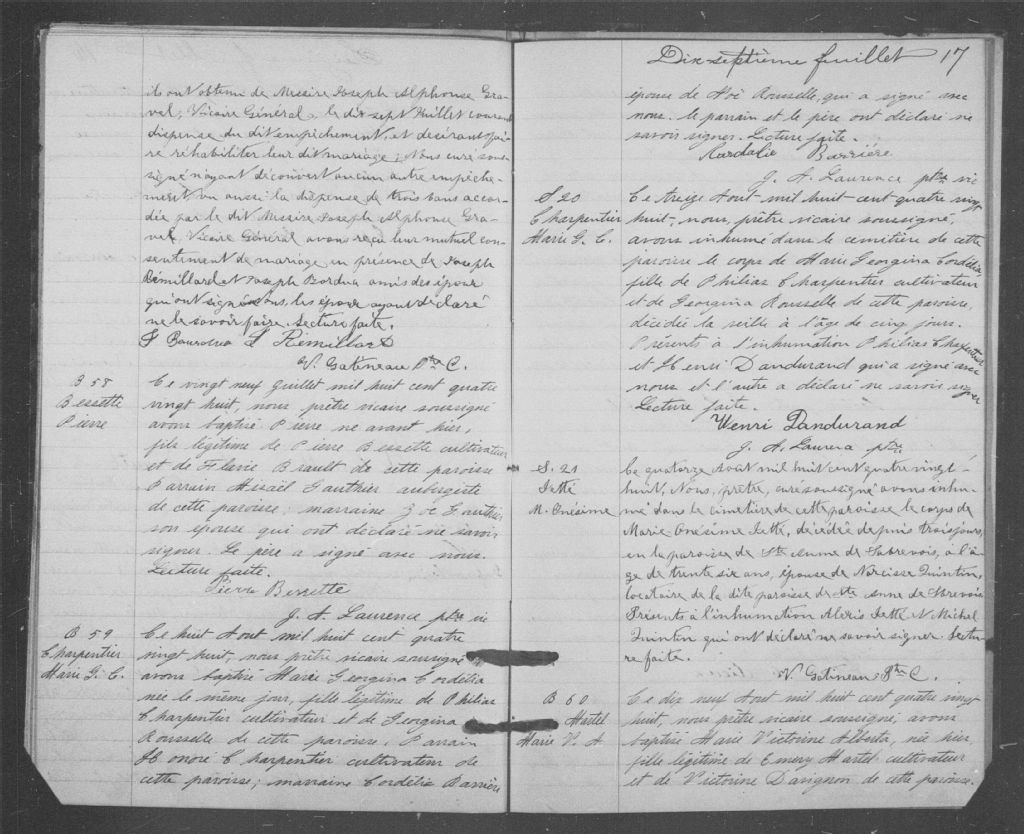 ils ont obtenu de Messire Joseph Alphonse Gra-
vel, Vicaire Général, le dix sept Juillet courant
dispense du dit empêchement, et désirant fai-
re réhabiliter leur dit mariage; Nous curé sous-
signé n'ayant découvert aucun autre empêche-
ment, vu aussi la dispense de trois bans accor-
dée par le dit Messire Joseph Alphonse Gra-
vel, Vicaire Général avons reçu leur mutuel con-
sentement de mariage en présence de Joseph
Rémillard et Joseph Bordua amis des époux
qui ont signé les époux ayant déclaré
ne le savoir faire. Lecture faite.
J Bourdua J Rémillard
N. Gatineau Ptre C.
B 58
Bessette
Pierre
Ce vingt neuf Juillet mil huit cent quatre
vingt huit, nous prêtre vicaire soussigné
avons baptisé Pierre né avant hier,
fils légitime de Pierre Bessette cultivateur
et de Flavie Brault de cette paroisse
Parrain Misaël Gauthier aubergiste
de cette paroisse; marraine Zoé Gauthier
son épouse qui ont déclaré ne savoir
signer. Le père a signé avec nous.
Lecture faite.
Pierre Bessette
J. A. Laurence ptre vic
B 59
Charpentier
Marie G. C.
Ce huit Aout mil huit cent quatre
vingt huit, nous prêtre vicaire soussigné
avons baptisé Marie Georgina Cordélia
née le même jour, fille légitime de Philias
Charpentier cultivateur et de Georgina
Rousselle de cette paroisse, Parrain
Honoré Charpentier cultivateur de
cette paroisse; marraine Cordélie Barrière
Dix septième feuillet 17
épouse de Noé Rousselle, qui a signé avec
nous. le parrain et le père ont déclaré ne
savoir signer. Lecture faite.
Kardalie Barrière
J. A. Laurence ptre vic
S 20
Charpentier
Marie G. C.
Ce treize Aout mil huit cent quatre vingt
huit, nous, prêtre vicaire soussigné,
avons inhumé dans le cemitière de cette
paroisse le corps de Marie Georgina Cordélia
fille de Philias Charpentier cultivateur
et de Georgina Rousselle de cette paroisse,
décédée la veille à l'âge de cinq jours.
Présents à l'inhumation Philias Charpentier
et Henri Dandurand qui a signé avec
nous et l'autre a déclaré ne savoir signer
Lecture faite.
Henri Dandurand
J. A. Laurence ptre
S. 21
Jetté
M. Onésime
Ce quatorze Aout mil huit cent quatre vingt-
huit, Nous, prêtre, curé soussigné avons inhu-
mé dans le cimetière de cette paroisse le corps de
Marie Onésime Jetté, décédée depuis trois jours,
en la paroisse de Ste Anne de Sabrevois, à l'â-
ge de trente six ans, épouse de Narcisse Quintin,
locataire de la dite paroisse de Ste Anne de Sabrevois
Présents à l'inhumation Alexis Jetté & Michel
Quintin qui ont déclaré ne savoir signer. Lectu-
re faite.
N. Gatineau Ptre C.
B 60
Martel
Marie V. A
Ce dix neuf Aout mil huit cent quatre vingt
huit, nous prêtre vicaire soussigné, avons
baptisé Marie Victorine Alberta, née hier,
fille légitime de Emery Martel cultivateur
et de Victorine Davignon de cette paroisse.